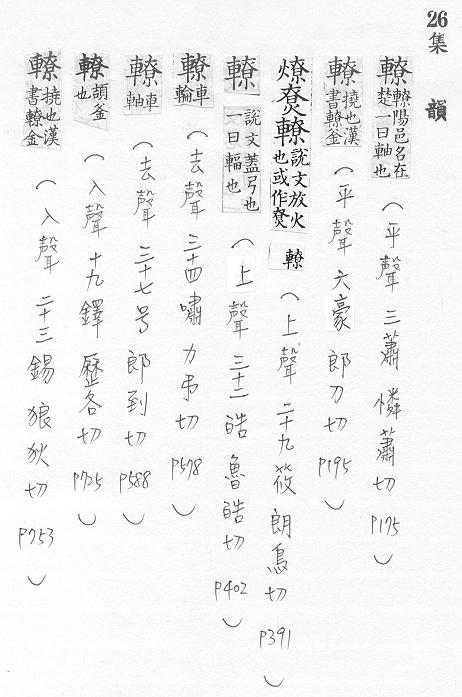 26集 韻
轑 轑陽邑名在楚一曰軸也 (平聲 三蕭 憐蕭切 P175)
轑 撓也漢書轑釜 (平聲 六豪 郎刀切 P195)
燎尞轑 說文放火也或作尞 轑 (上聲 二十九筱 朗鳥切 P391)
轑 說文蓋弓也一曰輻也 (上聲 三十二皓 魯皓切 P402)
轑 車輪 (去聲 三十四嘯 力弔切 P578)
轑 車軸 (去聲 三十七号 郎到切 P588)
轑 頡釜也 (入聲 十九鐸 歷各切 P725)
轑 撓也漢書轑釜 (入聲 二十三錫 狼狄切 P753)